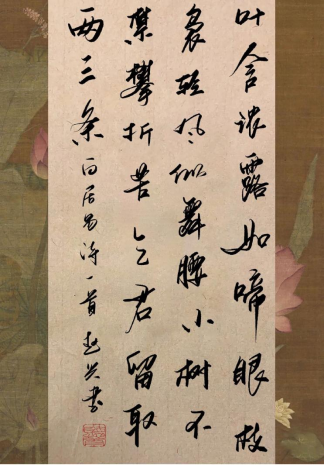 叶含浓露如啼眼枝
袅轻风似舞腰小树不
禁攀折苦乞君留取
两三条 白居易诗一首 书